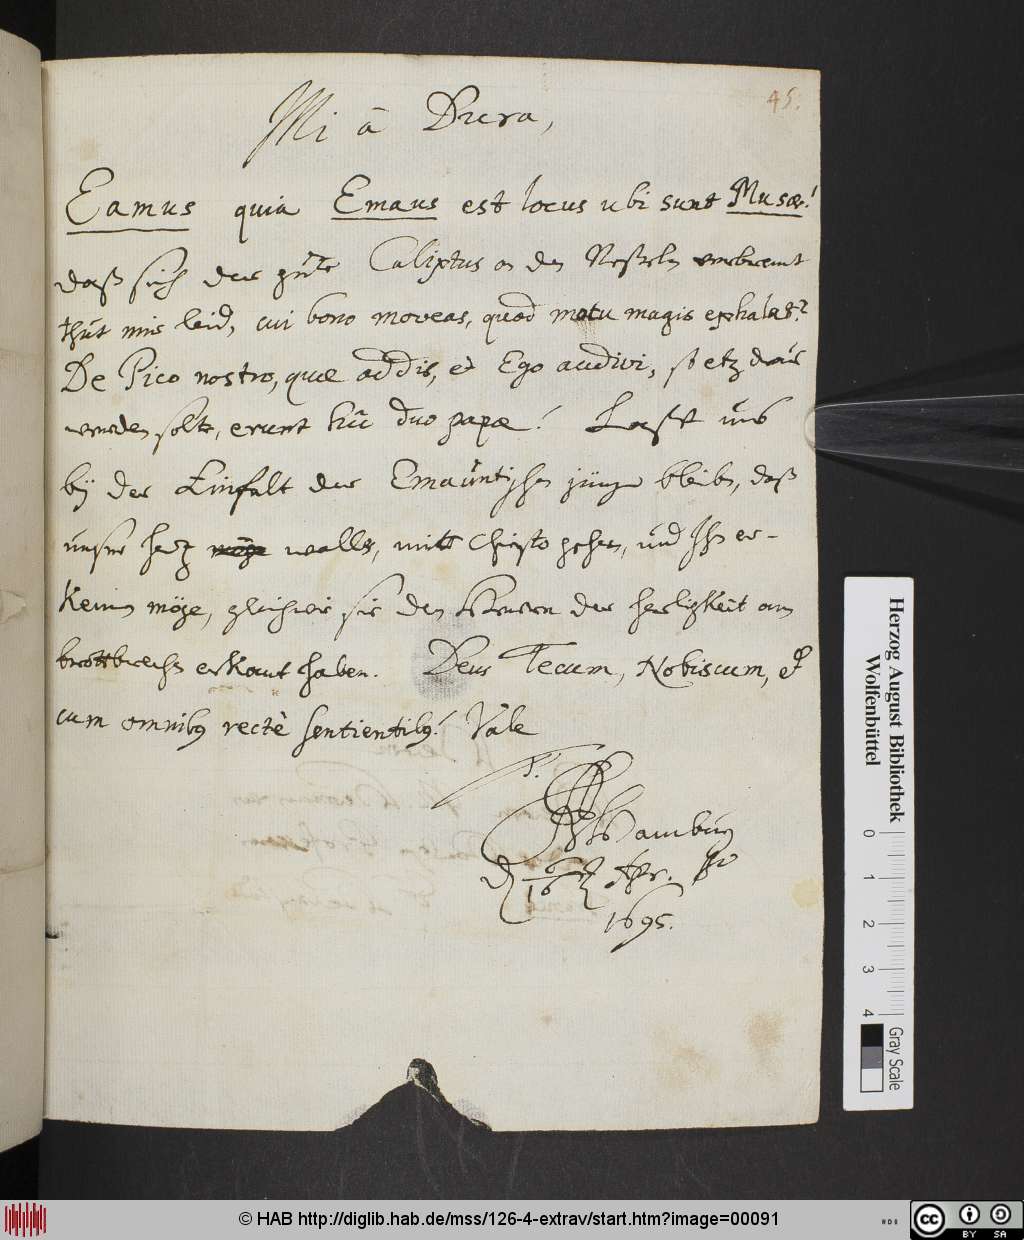 45.
Mi à Dura,
Eamus quia Emaus est locus ubi sunt Musæ!
daß sich der gute Calixtus an den Neßeln verbremt
thut mir leid, cui bono moveas, quod motu magis exhalat?
De Pico nostro, quæ addis, et Ego audivi, so etz
werden solte, erunt duo papæ! Laßt uns
bÿ der Einfalt der Emauntischen jünger bleiben, daß
unser hertz walle, mitt Christo gehen, und Ihn er-
kennen möge, gleichwie sie den Herren der herligkeit am
brottbrechen erkant haben. Deus Tecum, Nobiscum, et
cum omnibus rectè sentientibus! Vale
T.
Hamburg
d 16 Apr.
1695.
Herzog August Bibliothek
Wolfenbüttel
0 1 2 3 4
Gray Scale
© HAB http://diglib.hab.de/mss/126-4-extrav/start.htm?image=00091
cc BY SA